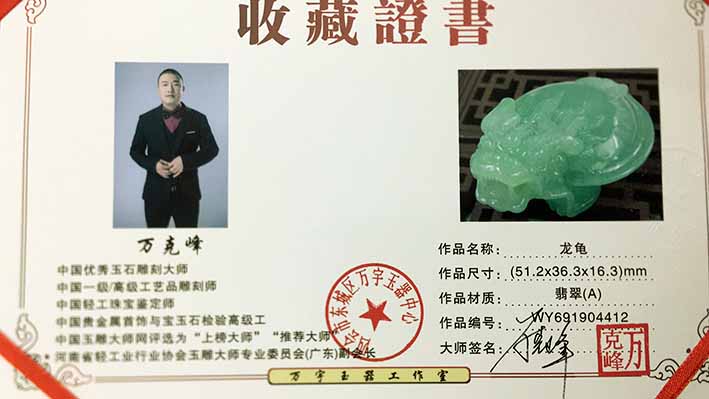 收藏證書
万克峰
中国优秀玉石雕刻大师
中国一级/高级工艺品雕刻师
中国轻工珠宝鉴定师
中国贵金属首饰与宝玉石检验高级工
中国玉雕大师网评选为“上榜大师”“推荐大师”
河南省轻工业行业协会玉雕大师专业委员会(广东)副会长
四会市东城区万字玉器中心
作品名称: 龙龟
作品尺寸: (51.2x36.3x16.3)mm
作品材质: 翡翠(A)
作品编号: WY691904412
大师签名:
万克峰
万字玉器工作室